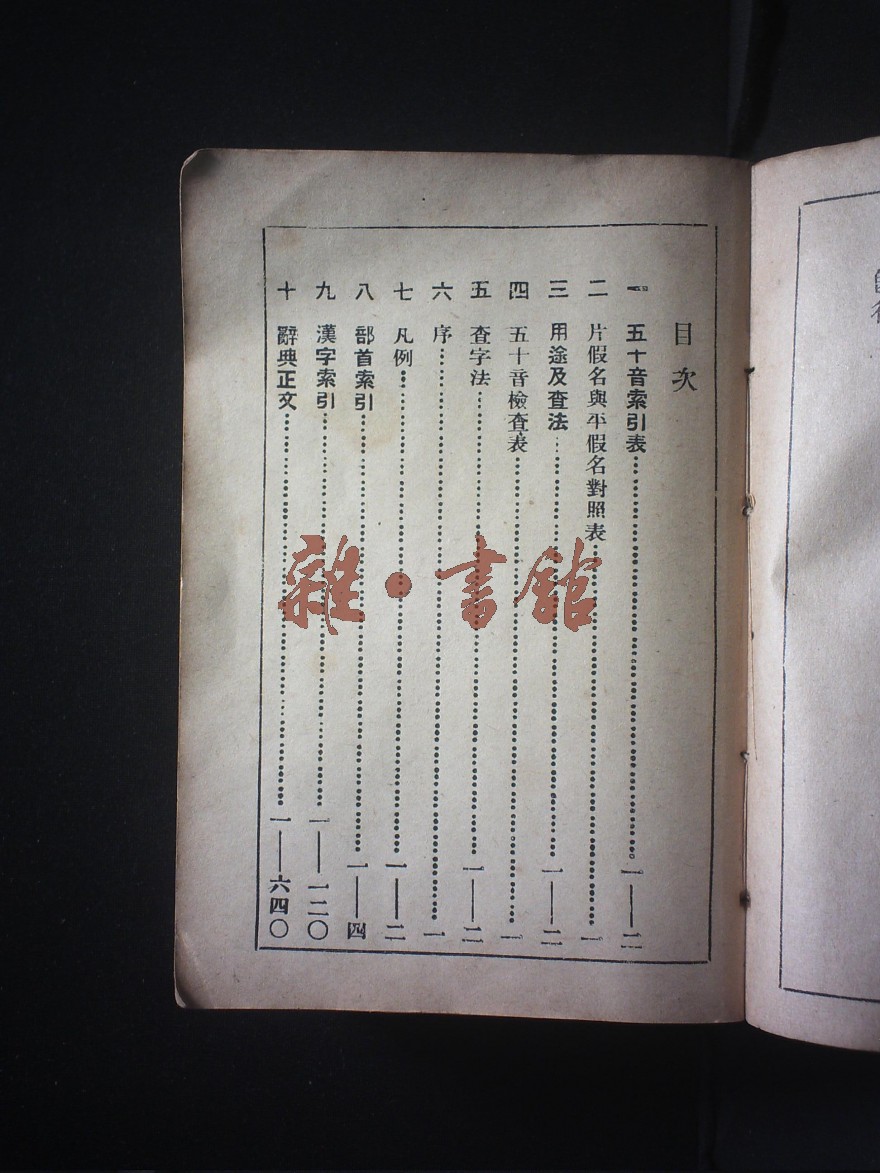 目次
一 五十音索引表……一——二
二 片假名與平假名對照表……一
三 用途及查法……一——二
四 五十音檢查表……一
五 查字法……一——二
六 序……一
七 凡例……一——二
八 部首索引……一——四
九 漢字索引……一——一二〇
十 辭典正文……一——六四〇
雜·書館